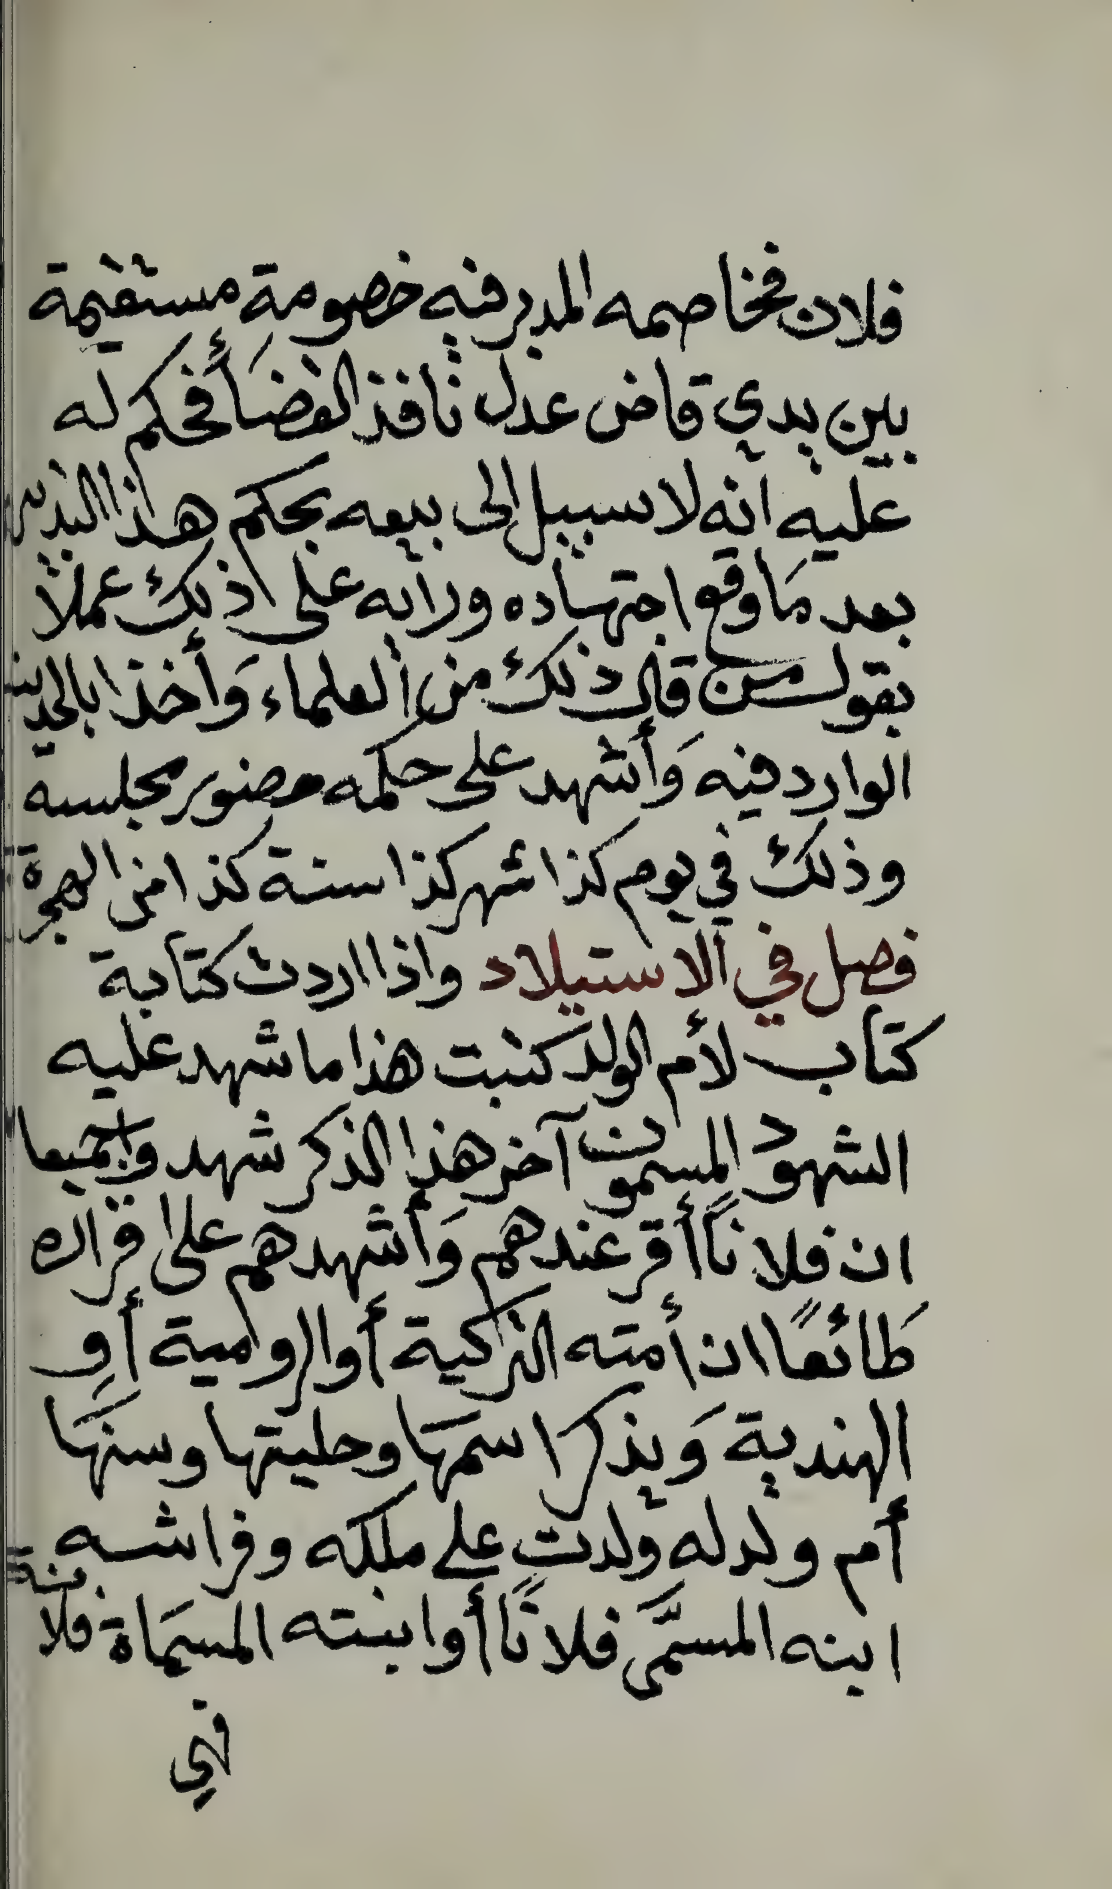 فلان فخاصمه المدبر فيه خصومة مستقيمة
بين يدي قاض عدل نافذ القضأ فحكم له
عليه انه لا سبيل الى بيعه بحكم هذا التدبير
بعد ما وقع اجتهاده ورأيه على ذلك عملاً
بقول من قال ذلك من العلماء وأخذا بالحديث
الوارد فيه وأشهد على حكمه حضور مجلسه
وذلك في يوم كذا شهر كذا سنة كذا من الهجرة
فصل في الاستيلاد واذا اردت كتابة
كتاب لأم الولد كتبت هذا ما شهد عليه
الشهود المسمون آخر هذا الذكر شهدوا جميعا
ان فلاناً أقر عندهم وأشهدهم على اقراره
طائعاً ان أمته التركية أو الرومية أو
الهندية ويذكر اسمها وحليتها وسنها
أم ولد له ولدت على ملكه وفراشه
ابنه المسمَّى فلاناً أو ابنته المسماة فلانة
فهي